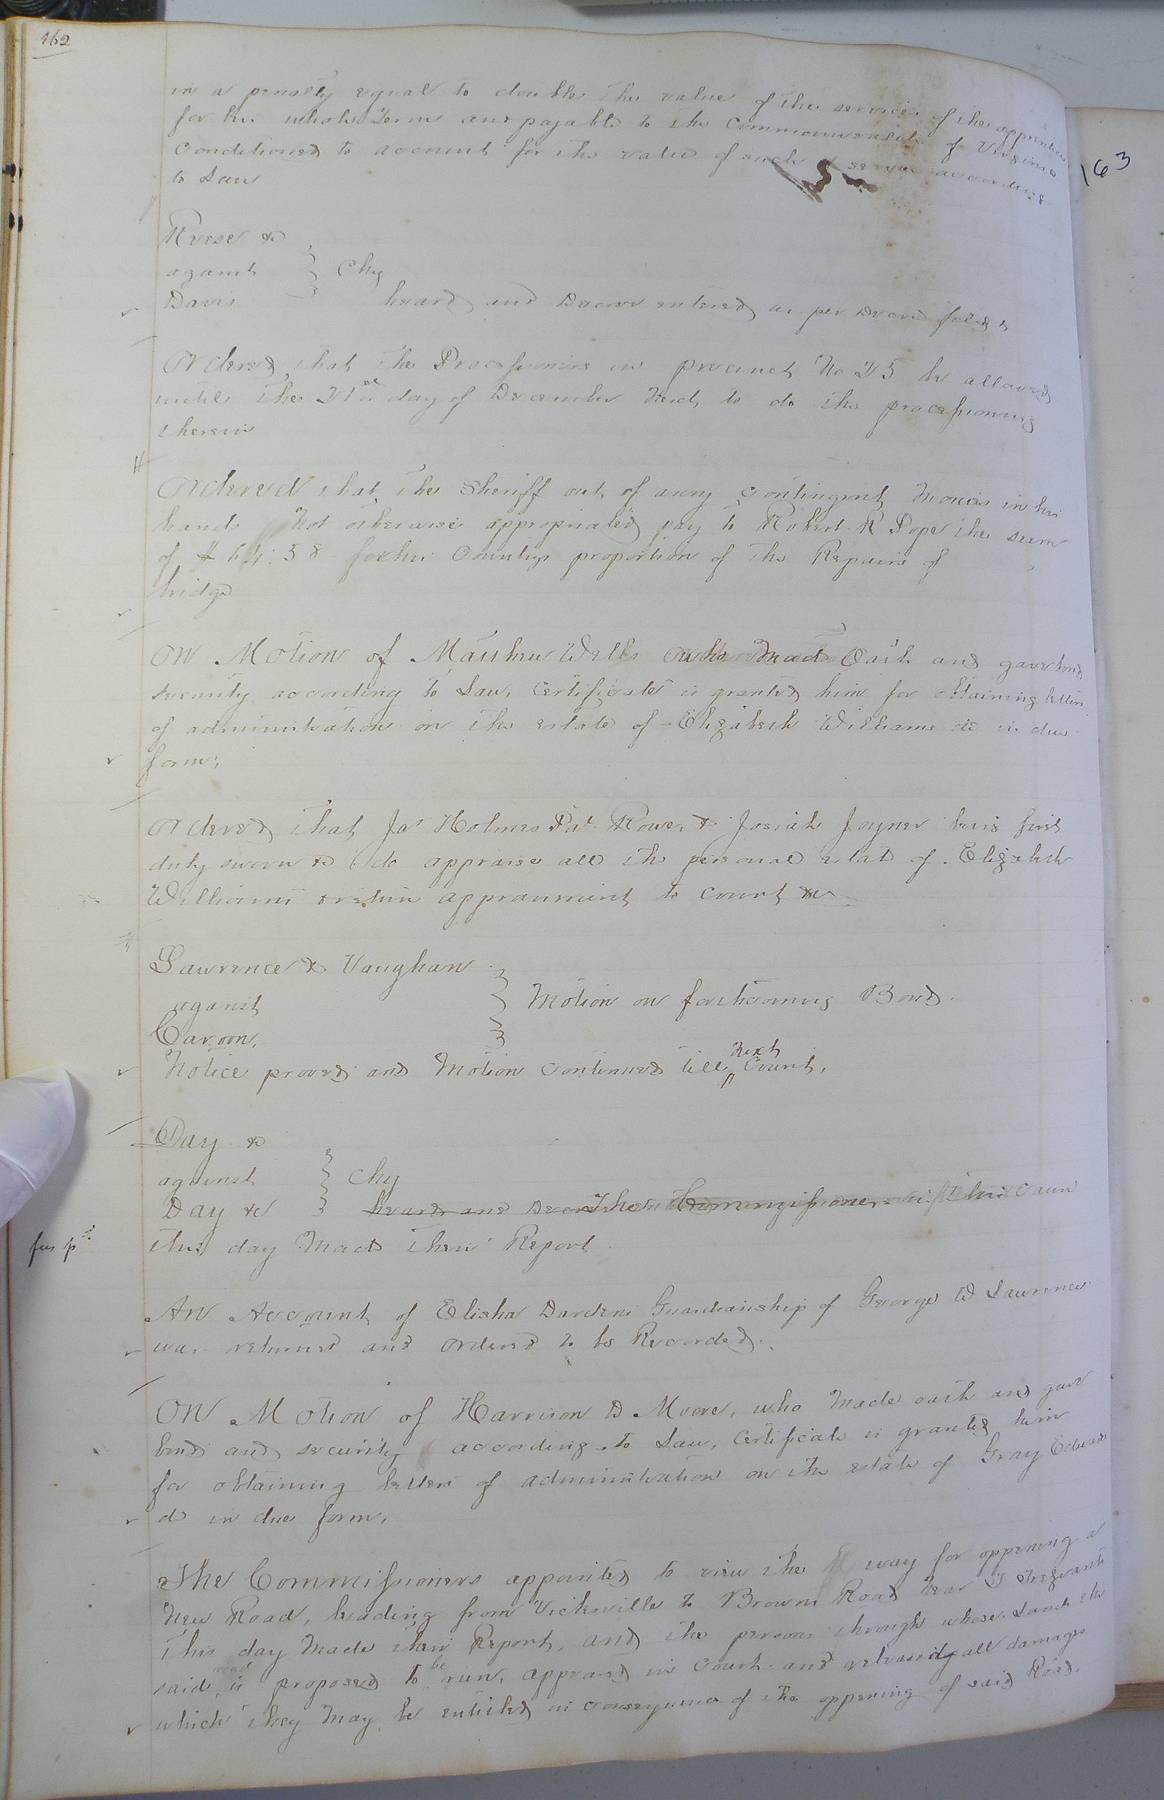 162
in a penalty equal to double the value of the services of the apprentice
for his whole Term and payable to the Commonwealth of Virginia
Conditioned to account for the value of such services according
to Law
163
Reese &c
against } Chy
Davis heard and Decree entered as per Decree filed
Ordered that the Processioners in precinct No 25 be allowed
until the 21st day of December Next to do the processioning
therein
Ordered that the Sheriff out of any Contingent Monies in his
hands Not otherwise appropriated pay to Robert R Pope the sum
of $ 64:58 for this Countys proportion of the Repairs of
bridge
ON Motion of Matthew Wells who Made Oath and gave bond
security according to Law, Certificate is granted him for obtaining letters
of administration on the estate of Elizabeth Williams dc in due
form,
Ordered that Jas Holmes Pat Rowe, & Josiah Joyner being first
duly sworn &c do appraise all the personal estate of Elizabeth
Williams & return appraisment to Court &c
Lawrence & Vaughan
against } Motion on forthcoming Bond
Carson,
Notice proved and Motion continued till Next Court,
Day &c
against } Chy
Day &c heard and Decree The Commissioners in this Caus
this day Made their Report
An Account of Elisha Dardens Guardianship of George W Lawrence
was returned and ordered to be Recorded.
ON Motion of Harrison D Moore, who Made oath and gave
bond and security according to Law, Certificate is granted him
for obtaining letters of administration on the estate of Gray Edwards
dc in due form,
The Commissioners appointed to view the way for oppening a
New Road, leading from Vicksville to Browns Road Near T Trezvants
This day Made their Report, and the persons through whose Lands the
said road is proposed to be run, appeard in Court and released all damages
which they May be entitled in consequence of the oppening of said Road.